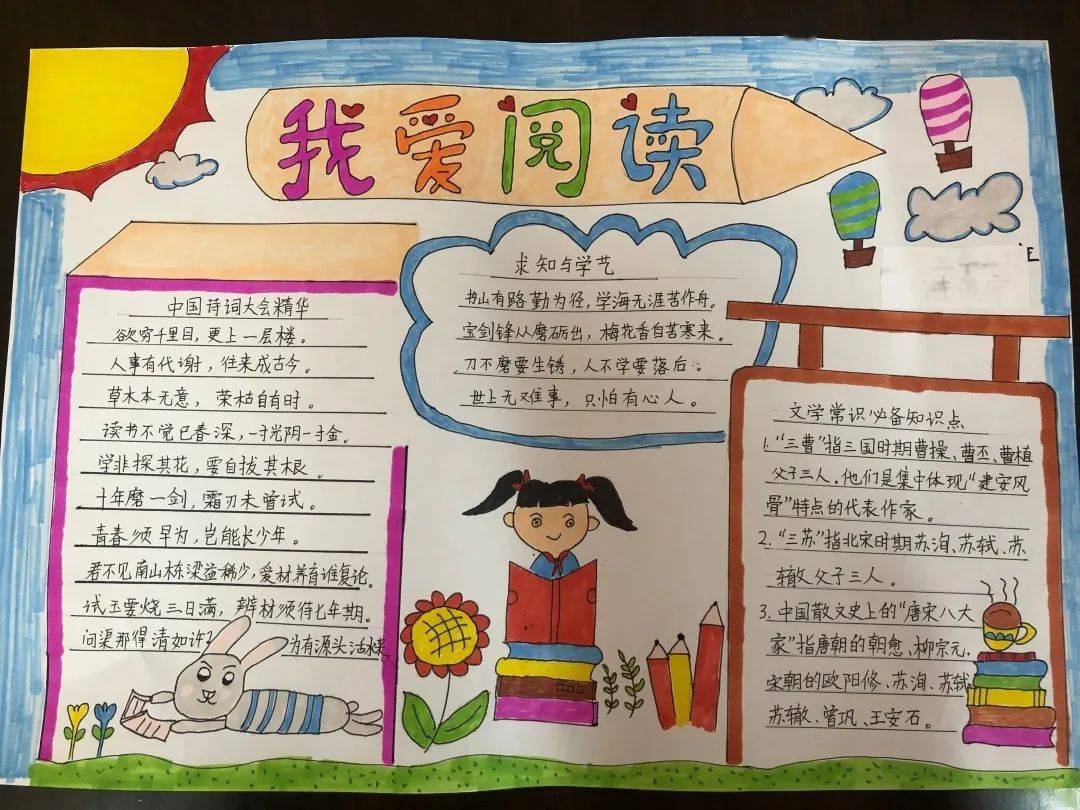 我爱阅读
中国诗词大会精华
欲穷千里目，更上一层楼。
人事有代谢，往来成古今。
草木本无意，荣枯自有时。
读书不觉已春深，一寸光阴一寸金。
学非探其花，要自拔其根。
十年磨一剑，霜刃未曾试。
青春须早为，岂能长少年。
君不见南山栋梁益稀少，爱材养育谁复论。
试玉要烧三日满，辨材须待七年期。
问渠那得清如许？为有源头活水来
求知与学艺
书山有路勤为径，学海无涯苦作舟。
宝剑锋从磨砺出，梅花香自苦寒来。
刀不磨要生锈，人不学要落后。
世上无难事，只怕有心人。
文学常识必备知识点
1.“三曹”指三国时期曹操、曹丕、曹植
父子三人。他们是集中体现“建安风
骨”特点的代表作家。
2.“三苏”指北宋时期苏洵、苏轼、苏
辙父子三人。
3.中国散文史上的“唐宋八大
家”指唐朝的朝愈、柳宗元，
宋朝的欧阳修、苏洵、苏轼
苏辙、曾巩、王安石。